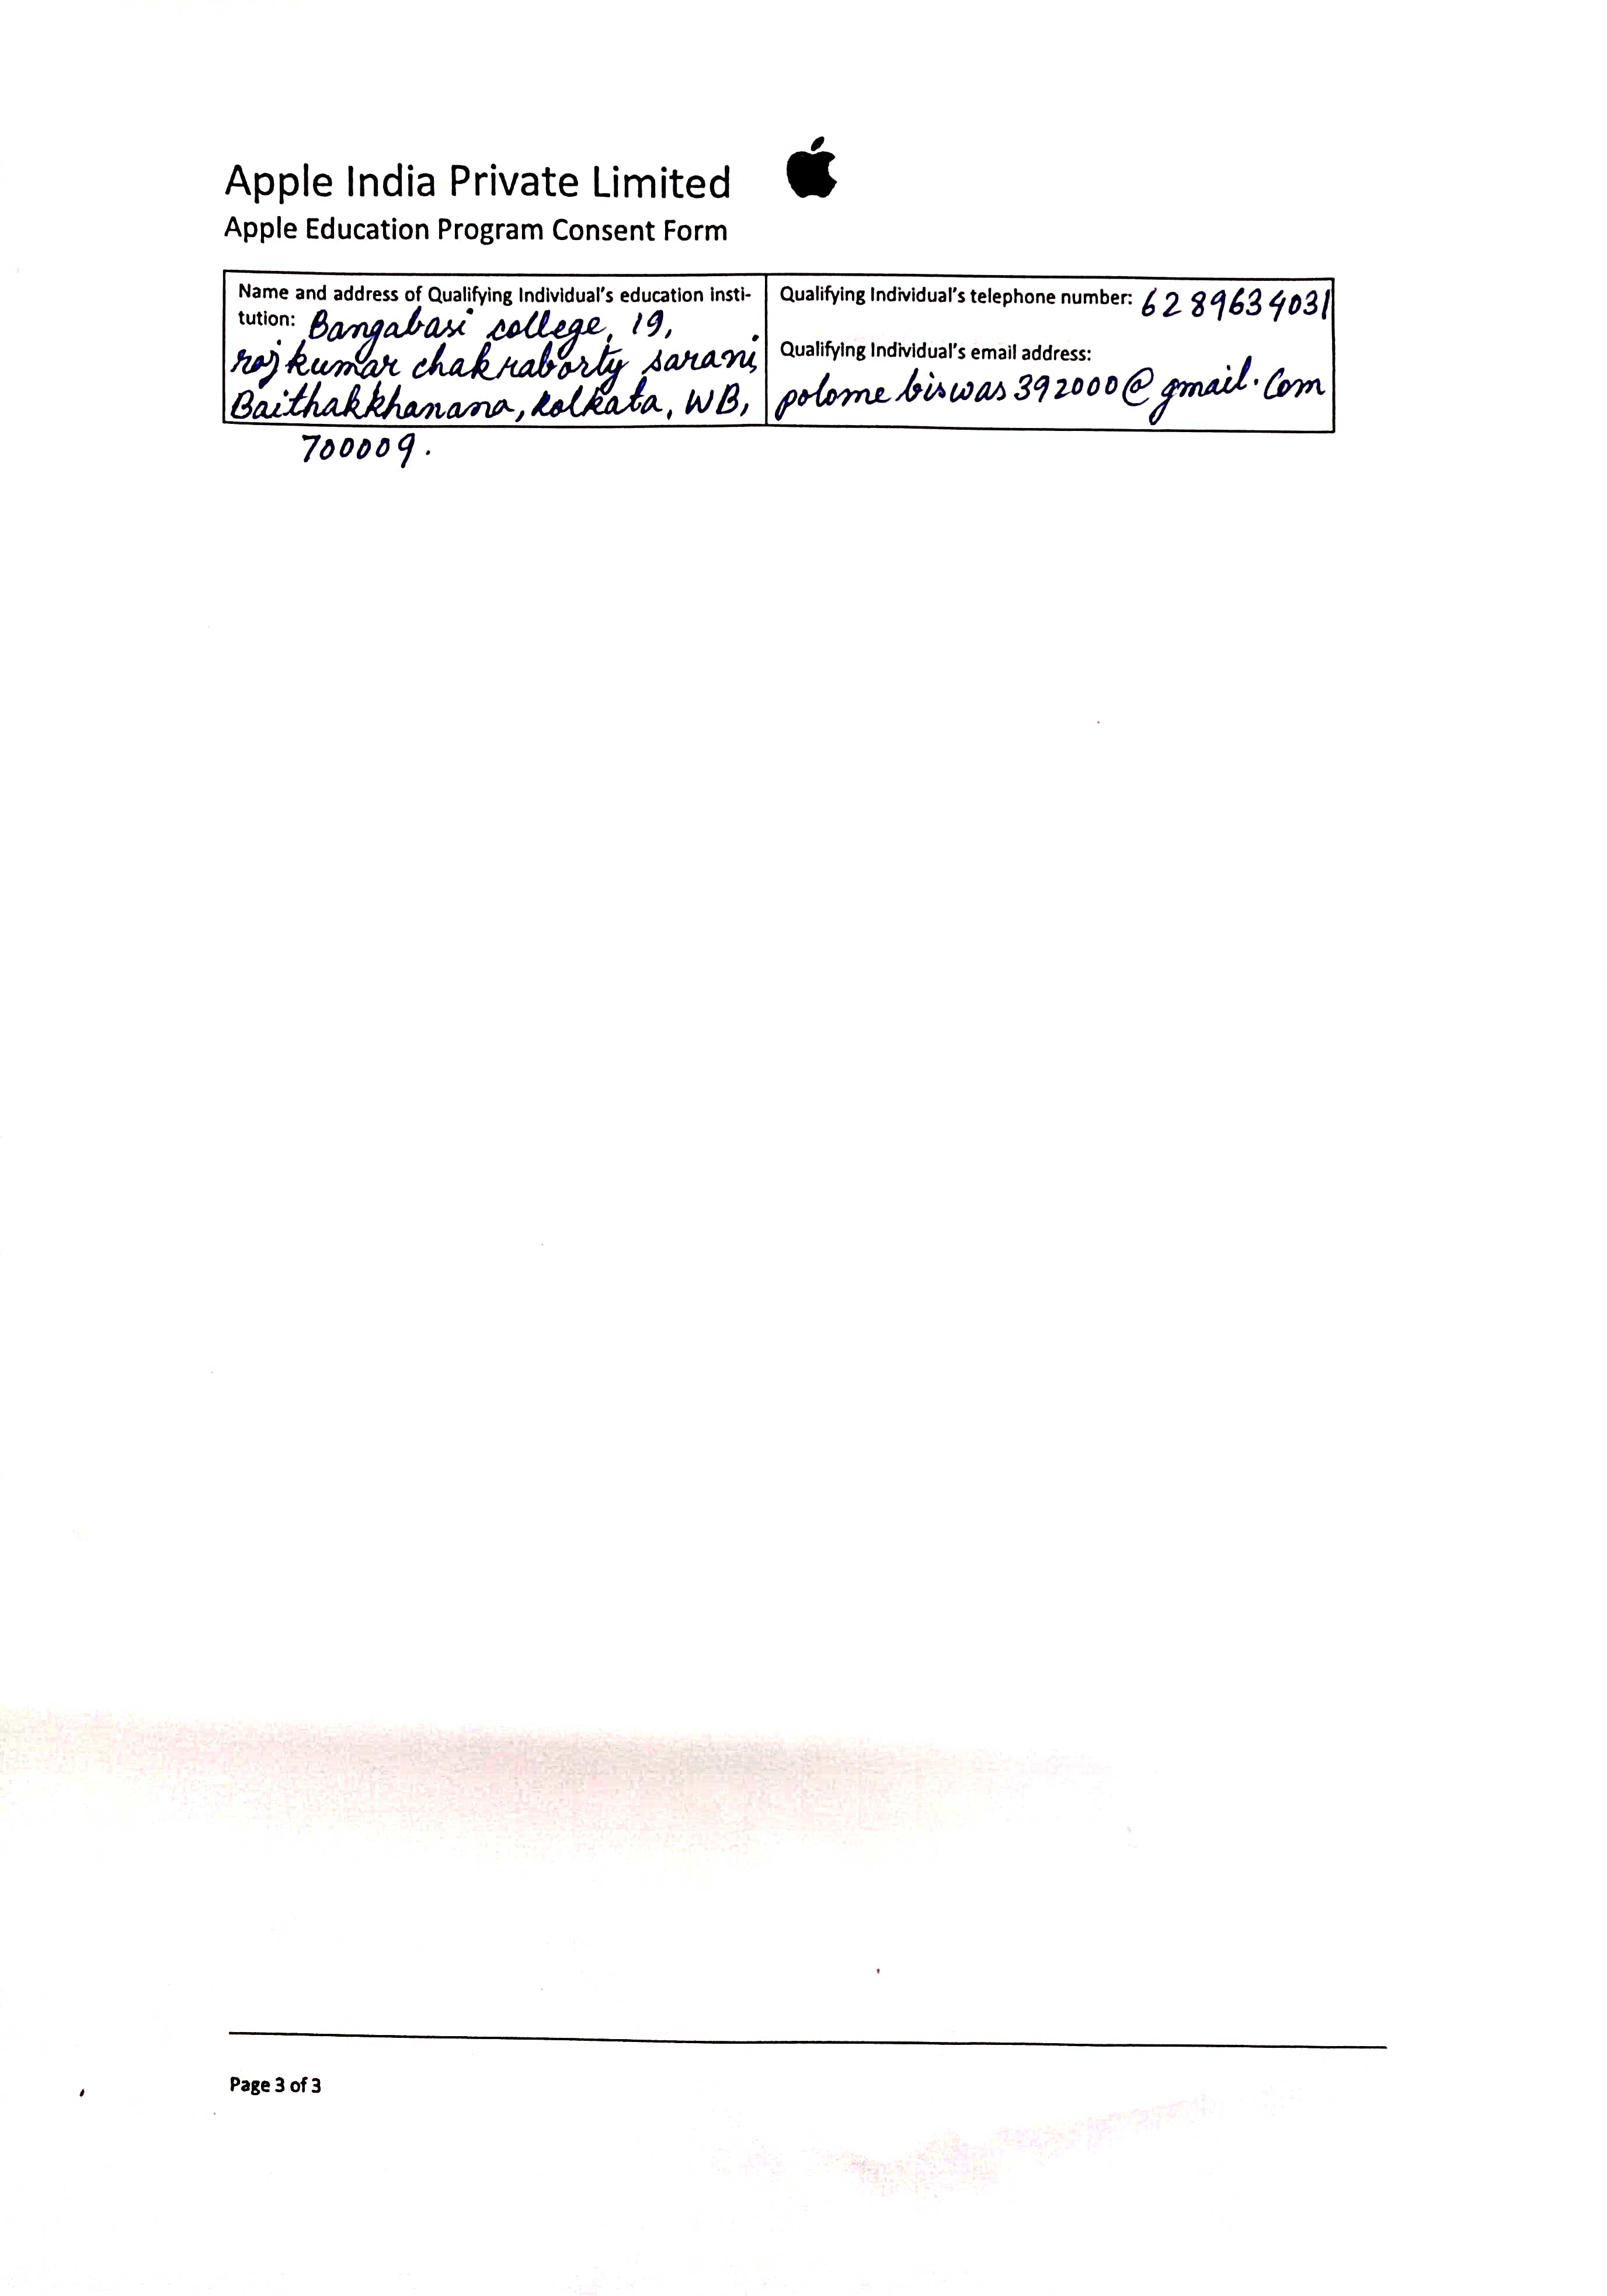 Apple India Private Limited
Apple Education Program Consent Form
Name and address of Qualifying Individual's education insti-
tution: Bangabasi college, 19,
rajkumar chakraborty sarani,
Baithakkhanana, kolkata, WB,
700009.
Qualifying Individual's telephone number: 6289634031
Qualifying Individual's email address:
polomebiswas392000@gmail.com
Page 3 of 3